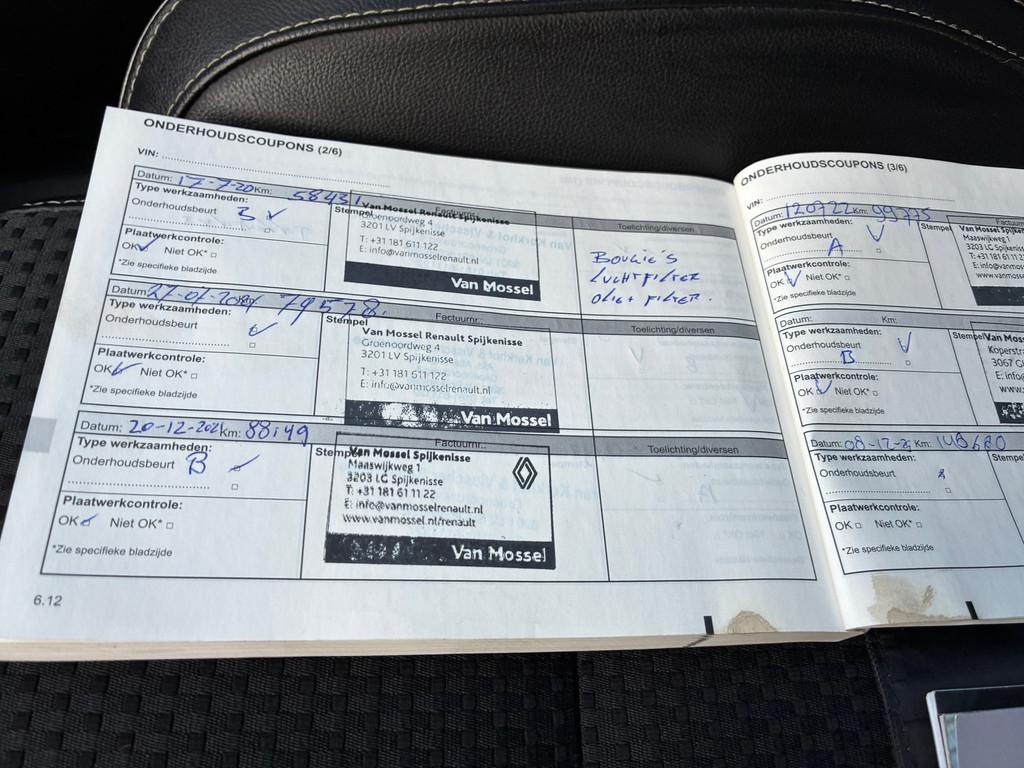 ONDERHOUDSCOUPONS (2/6)
VIN:
Datum: 17-7-20 Km: 58431
Type werkzaamheden:
Onderhoudsbeurt B ✓
Plaatwerkcontrole:
OK ✓ Niet OK* □
*Zie specifieke bladzijde
Stempel Factuurnr.:
Van Mossel Renault Spijkenisse
Groenoordweg 4
3201 LV Spijkenisse
T: +31 181 611 122
E: info@vanmosselrenault.nl
Van Mossel
Toelichting/diversen
BOUGIE'S
LUCHTFILTER
OLIE+ FILTER.
Datum: 79578
Type werkzaamheden:
Onderhoudsbeurt ✓
□
Plaatwerkcontrole:
OK ✓ Niet OK* □
*Zie specifieke bladzijde
Stempel Factuurnr.:
Van Mossel Renault Spijkenisse
Groenoordweg 4
3201 LV Spijkenisse
T: +31 181 611 122
E: info@vanmosselrenault.nl
Van Mossel
Toelichting/diversen
Datum: 20-12-2021 Km: 88149
Type werkzaamheden:
Onderhoudsbeurt B ✓
□
Plaatwerkcontrole:
OK ✓ Niet OK* □
*Zie specifieke bladzijde
Stempel Factuurnr.:
Van Mossel Spijkenisse
Maaswijkweg 1
3203 LG Spijkenisse
T: +31 181 61 11 22
E: info@vanmosselrenault.nl
www.vanmossel.nl/renault
Van Mossel
Toelichting/diversen
6.12
ONDERHOUDSCOUPONS (3/6)
VIN:
Datum: 120722 Km: 99775
Type werkzaamheden:
Onderhoudsbeurt ✓
A □
Plaatwerkcontrole:
OK ✓ Niet OK* □
*Zie specifieke bladzijde
Stempel
Maaswijkweg 1
3203 LG Spijkenisse
Datum: Km:
Type werkzaamheden:
Onderhoudsbeurt ✓
B □
Plaatwerkcontrole:
OK ✓ Niet OK* □
*Zie specifieke bladzijde
Stempel
Datum: Km:
Type werkzaamheden:
Onderhoudsbeurt
Plaatwerkcontrole:
OK □ Niet OK* □
*Zie specifieke bladzijde